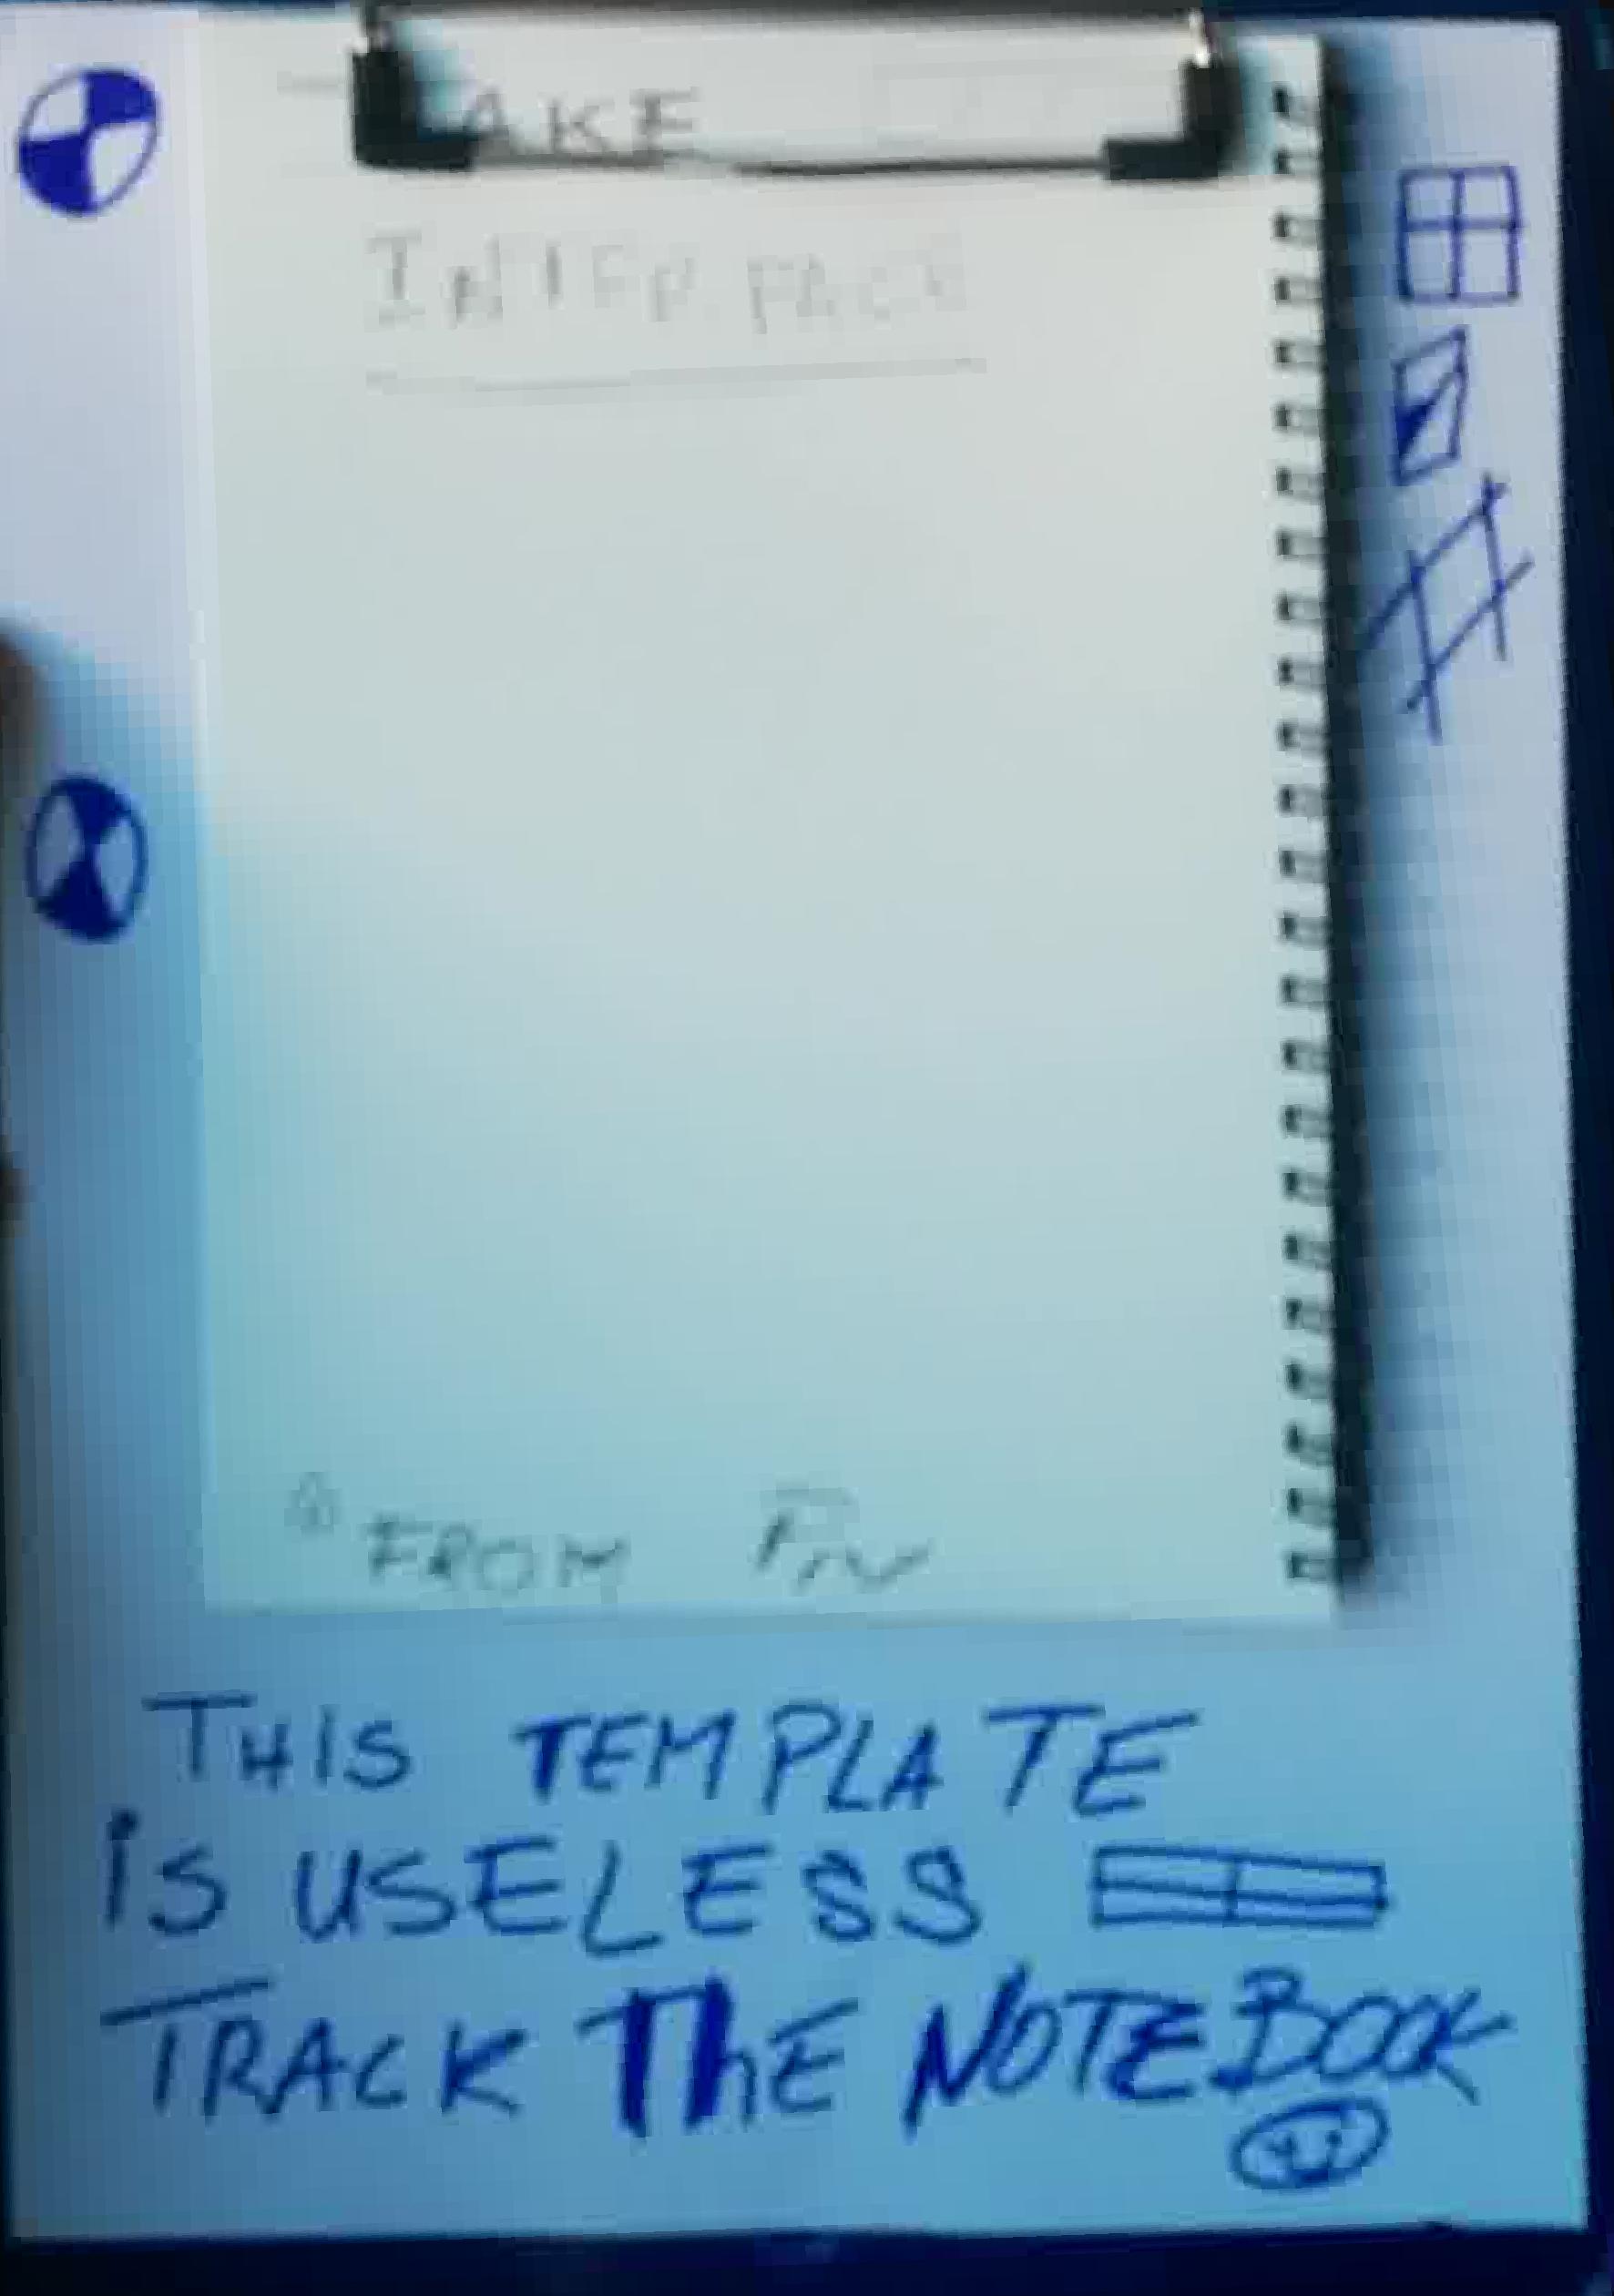 AKE
INTERFACE
FROM
THIS TEMPLATE
iS USELESS
TRACK ThE NOTEBOOK